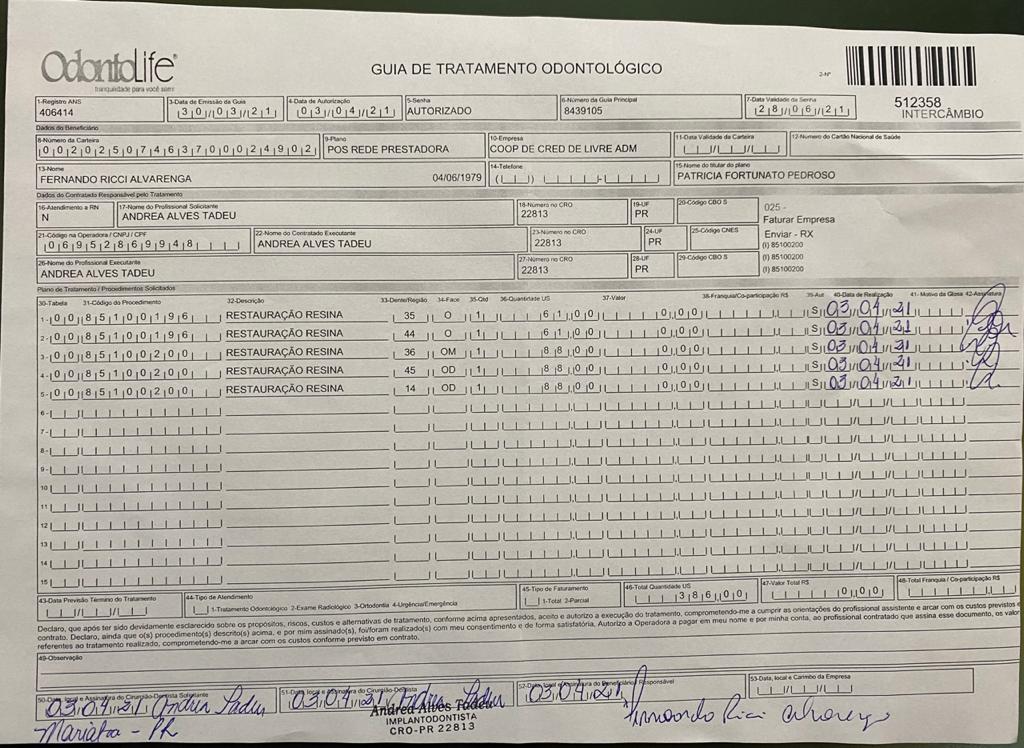 OdontoLife
tranquilidade para você sorrir
GUIA DE TRATAMENTO ODONTOLÓGICO
2-Nº
512358
INTERCÂMBIO
1-Registro ANS
406414
3-Data de Emissão da Guia
30/03/21
4-Data de Autorização
03/04/21
5-Senha
AUTORIZADO
6-Número da Guia Principal
8439105
7-Data Validade da Senha
28/06/21
Dados do Beneficiário
8-Número da Carteira
00202507463700024902
9-Plano
POS REDE PRESTADORA
10-Empresa
COOP DE CRED DE LIVRE ADM
11-Data Validade da Carteira
12-Número do Cartão Nacional de Saúde
13-Nome
FERNANDO RICCI ALVARENGA 04/06/1979
14-Telefone
15-Nome do titular do plano
PATRICIA FORTUNATO PEDROSO
Dados do Contratado Responsável pelo Tratamento
16-Atendimento a RN
N
17-Nome do Profissional Solicitante
ANDREA ALVES TADEU
18-Número no CRO
22813
19-UF
PR
20-Código CBO S
025 -
Faturar Empresa
Enviar - RX
(I) 85100200
(I) 85100200
(I) 85100200
21-Código na Operadora / CNPJ / CPF
06952869948
22-Nome do Contratado Executante
ANDREA ALVES TADEU
23-Número no CRO
22813
24-UF
PR
25-Código CNES
26-Nome do Profissional Executante
ANDREA ALVES TADEU
27-Número no CRO
22813
28-UF
PR
29-Código CBO S
Plano de Tratamento / Procedimentos Solicitados
30-Tabela 31-Código do Procedimento 32-Descrição 33-Dente/Região 34-Face 35-Qtd 36-Quantidade US 37-Valor 38-Franquia/Co-participação R$ 39-Aut 40-Data de Realização 41-Motivo da Glosa 42-Assinatura
1- 00 85100196 RESTAURAÇÃO RESINA 35 O 1 61,00 0,00 S 03/04/21
2- 00 85100196 RESTAURAÇÃO RESINA 44 O 1 61,00 0,00 S 03/04/21
3- 00 85100200 RESTAURAÇÃO RESINA 36 OM 1 88,00 0,00 S 03/04/21
4- 00 85100200 RESTAURAÇÃO RESINA 45 OD 1 88,00 0,00 S 03/04/21
5- 00 85100200 RESTAURAÇÃO RESINA 14 OD 1 88,00 0,00 S 03/04/21
6-
7-
8-
9-
10
11
12
13
14
15
43-Data Previsão Término do Tratamento
44-Tipo de Atendimento
1-Tratamento Odontológico 2-Exame Radiológico 3-Ortodontia 4-Urgência/Emergência
45-Tipo de Faturamento
1-Total 2-Parcial
46-Total Quantidade US
386,00
47-Valor Total R$
0,00
48-Total Franquia / Co-participação R$
Declaro, que após ter sido devidamente esclarecido sobre os propósitos, riscos, custos e alternativas de tratamento, conforme acima apresentados, aceito e autorizo a execução do tratamento, comprometendo-me a cumprir as orientações do profissional assistente e arcar com os custos previstos e
contrato. Declaro, ainda que o(s) procedimento(s) descrito(s) acima, e por mim assinado(s), foi/foram realizado(s) com meu consentimento e de forma satisfatória. Autorizo a Operadora a pagar em meu nome e por minha conta, ao profissional contratado que assina esse documento, os valor
referentes ao tratamento realizado, comprometendo-me a arcar com os custos conforme previsto em contrato.
49-Observação
50-Data, local e Assinatura do Cirurgião-Dentista Solicitante
03/04/21 Andrea Tadeu
51-Data, local e Assinatura do Cirurgião-Dentista
03/04/21 Andrea Tadeu
Andrea Alves Tadeu
IMPLANTODONTISTA
CRO-PR 22813
52-Data, local e Assinatura do Beneficiário / Responsável
03/04/21
53-Data, local e Carimbo da Empresa
Fernando Ricci Alvarenga